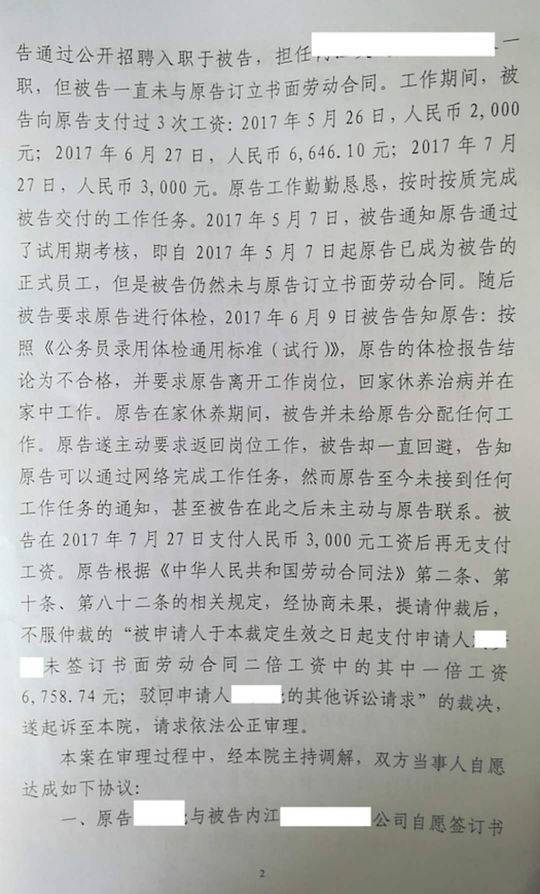 告通过公开招聘入职于被告，担任 一
职，但被告一直未与原告订立书面劳动合同。工作期间，被
告向原告支付过3次工资：2017年5月26日，人民币2,000
元；2017年6月27日，人民币6,646.10元；2017年7月
27日，人民币3,000元。原告工作勤勤恳恳，按时按质完成
被告交付的工作任务。2017年5月7日，被告通知原告通过
了试用期考核，即自2017年5月7日起原告已成为被告的
正式员工，但是被告仍然未与原告订立书面劳动合同。随后
被告要求原告进行体检，2017年6月9日被告告知原告：按
照《公务员录用体检通用标准（试行）》，原告的体检报告结
论为不合格，并要求原告离开工作岗位，回家休养治病并在
家中工作。原告在家休养期间，被告并未给原告分配任何工
作。原告遂主动要求返回岗位工作，被告却一直回避，告知
原告可以通过网络完成工作任务，然而原告至今未接到任何
工作任务的通知，甚至被告在此之后未主动与原告联系。被
告在2017年7月27日支付人民币3,000元工资后再无支付
工资。原告根据《中华人民共和国劳动合同法》第二条、第
十条、第八十二条的相关规定，经协商未果，提请仲裁后，
不服仲裁的“被申请人于本裁定生效之日起支付申请人
未签订书面劳动合同二倍工资中的其中一倍工资
6,758.74元；驳回申请人 的其他诉讼请求”的裁决，
遂起诉至本院，请求依法公正审理。
本案在审理过程中，经本院主持调解，双方当事人自愿
达成如下协议：
一、原告 与被告内江 公司自愿签订书
2